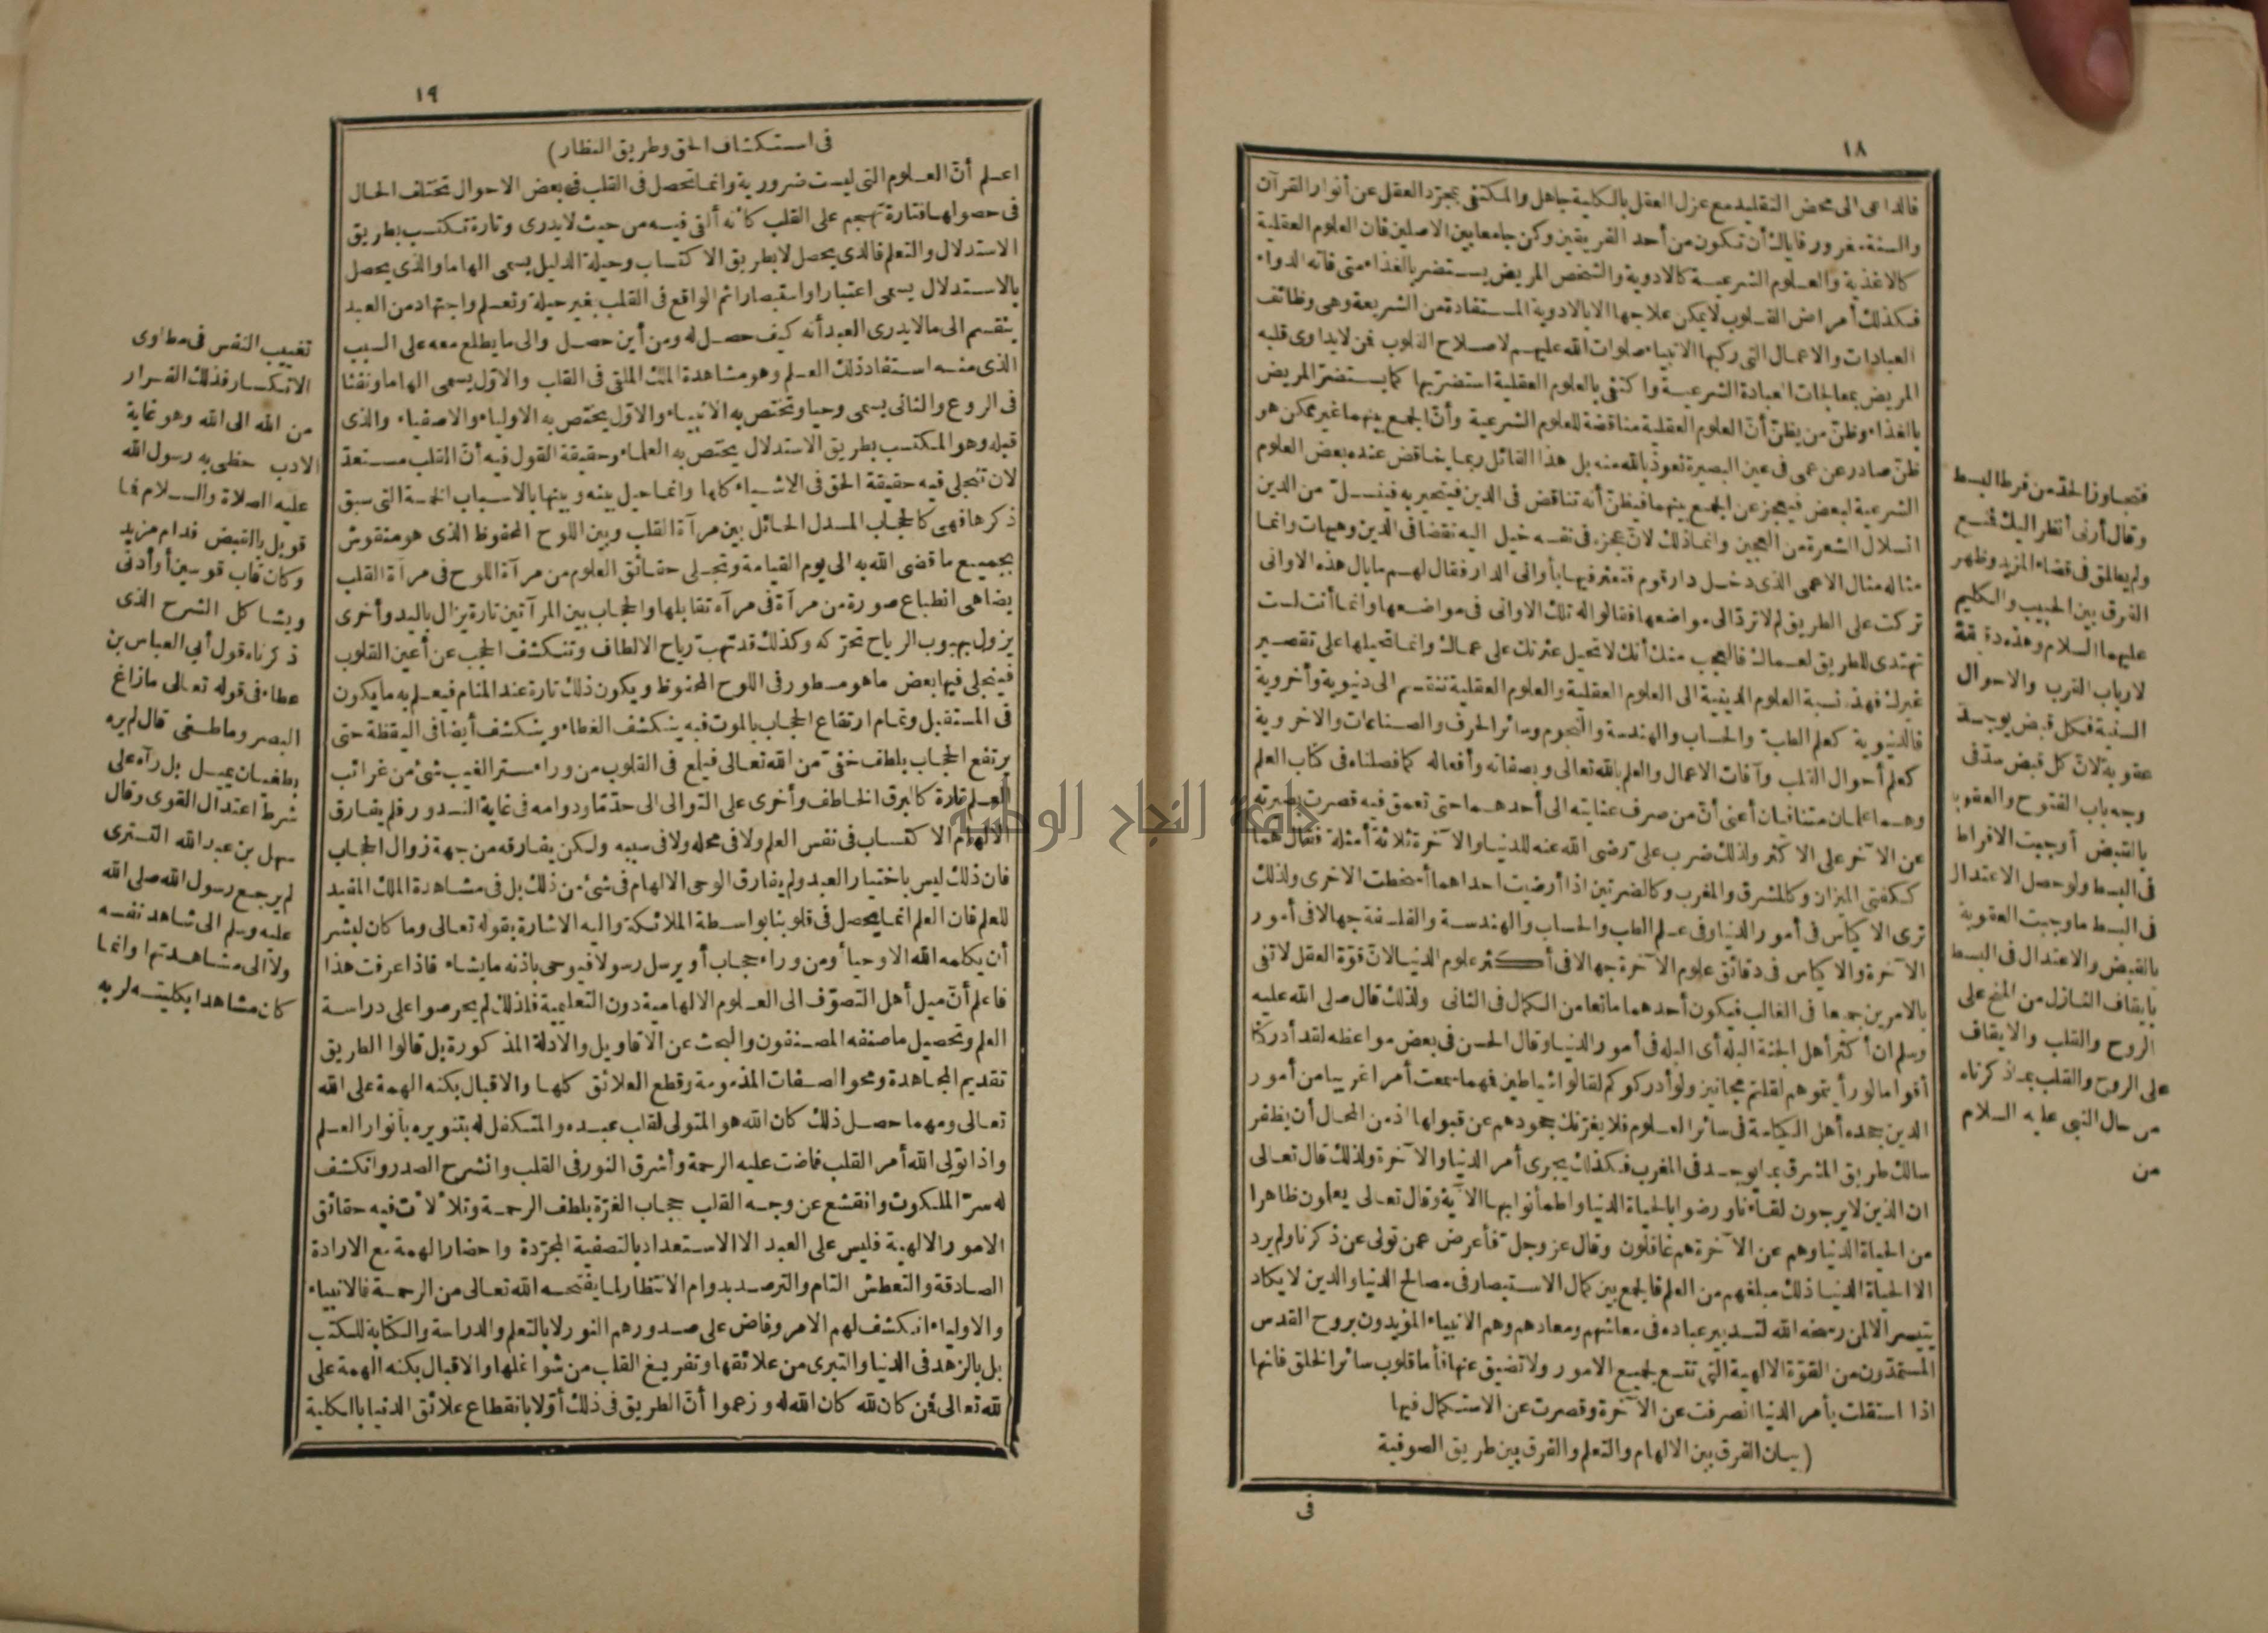 ١٨
فالداعى الى محض التقليد مع عزل العقل بالكلية جاهل والمكتفى بمجرّد العقل عن أنوار القرآن
والسنة مغرور فاياك أن تكون من أحد الفريقين وكن جامعا بين الاصلين فان العلوم العقلية
كالاغذية والعلوم الشرعية كالادوية والشخص المريض يستضر بالغذاء متى فاته الدواء
فكذلك أمراض القلوب لا يمكن علاجها الا بالادوية المستفادة من الشريعة وهى وظائف
العبادات والاعمال التى ركبها الانبياء صلوات الله عليهم لاصلاح القلوب فمن لا يداوى قلبه
المريض بمعالجات العبادة الشرعية واكتفى بالعلوم العقلية استضرّ بها كما يستضرّ المريض
بالغذاء وظنّ من يظنّ أنّ العلوم العقلية مناقضة للعلوم الشرعية وأنّ الجمع بينهما غير ممكن هو
ظنّ صادر عن عمى فى عين البصيرة نعوذ بالله منه بل هذا القائل ربما يناقض عنده بعض العلوم
الشرعية لبعض فيعجز عن الجمع بينهما فيظنّ أنه تناقض فى الدين فيتحير به فينسلّ من الدين
انسلال الشعرة من العجين وانما ذلك لانّ عجزه فى نفسه خيل اليه نقضا فى الدين وهيهات وانما
مثاله مثال الاعمى الذى دخل دار قوم فتعثر فيها بأوانى الدار فقال لهم ما بال هذه الاوانى
تركت على الطريق لم لا تردّ الى مواضعها فقالوا له تلك الاوانى فى مواضعها وانما أنت لست
تهتدى للطريق لعماك فالعجب منك أنك لا تحيل عثرتك على عماك وانما تحيلها على تقصير
غيرك فهذه نسبة العلوم الدينية الى العلوم العقلية والعلوم العقلية تنقسم الى دنيوية وأخروية
فالدنيوية كعلم الطب والحساب والهندسة والنجوم وسائر الحرف والصناعات والاخروية
كعلم أحوال القلب وآفات الاعمال والعلم بالله تعالى وبصفاته وأفعاله كما فصلناه فى كتاب العلم
وهما علمان متنافيان أعنى أنّ من صرف عنايته الى أحدهما حتى تعمق فيه قصرت بصيرته
عن الآخر على الاكثر ولذلك ضرب علىّ رضى الله عنه للدنيا والآخرة ثلاثة أمثلة فقال هما
ككفتى الميزان وكالمشرق والمغرب وكالضرتين اذا أرضيت احداهما أسخطت الاخرى ولذلك
ترى الاكياس فى أمور الدنيا وفى علم الطب والحساب والهندسة والفلسفة جهالا فى أمور
الآخرة والاكياس فى دقائق علوم الآخرة جهالا فى أكثر علوم الدنيا لانّ قوّة العقل لا تفى
بالامرين جميعا فى الغالب فيكون أحدهما مانعا من الكمال فى الثانى ولذلك قال صلى الله عليه
وسلم ان أكثر أهل الجنة البله أى البله فى أمور الدنيا وقال الحسن فى بعض مواعظه لقد أدركنا
أقواما لو رأيتموهم لقلتم مجانين ولو أدركوكم لقالوا شياطين فهما سمعت أمرا غريبا من أمور
الدين جحده أهل الكياسة فى سائر العلوم فلا يغرّنك جحودهم عن قبولها اذ من المحال أن يظفر
سالك طريق المشرق بما يوجد فى المغرب فكذلك يجرى أمر الدنيا والآخرة ولذلك قال تعالى
ان الذين لا يرجون لقاءنا ورضوا بالحياة الدنيا واطمأنوا بها الآية وقال تعالى يعلمون ظاهرا
من الحياة الدنيا وهم عن الآخرة هم غافلون وقال عز وجل فأعرض عمن تولى عن ذكرنا ولم يرد
الا الحياة الدنيا ذلك مبلغهم من العلم فالجمع بين كمال الاستبصار فى مصالح الدنيا والدين لا يكاد
يتيسر الا لمن رسخه الله لتدبير عباده فى معاشهم ومعادهم وهم الانبياء المؤيدون بروح القدس
المستمدّون من القوّة الالهية التى تتسع لجميع الامور ولا تضيق عنها فأما قلوب سائر الخلق فانها
اذا استقلت بأمر الدنيا انصرفت عن الآخرة وقصرت عن الاستكمال فيها
(بيان الفرق بين الالهام والتعلم والفرق بين طريق الصوفية
فى
فتجاوز الحدّ من فرط البسط
وقال أرنى أنظر اليك فمنع
ولم يطلق فى فضاء المزيد وظهر
الفرق بين الحبيب والكليم
عليهما السلام وهذه دقيقة
لارباب القرب والاحوال
السنية فكل قبض يوجب
عقوبة لانّ كل قبض سدّ فى
وجه باب الفتوح والعقوبة
بالقبض أوجبت الافراط
فى البسط ولو حصل الاعتدال
فى البسط ما وجبت العقوبة
بالقبض والاعتدال فى البسط
بايقاف النازل من المنح على
الروح والقلب والايقاف
على الروح والقلب بما ذكرناه
من حال النبى عليه السلام
من
١٩
فى استكشاف الحق وطريق النظار)
اعلم أنّ العلوم التى ليست ضرورية وانما تحصل فى القلب فى بعض الاحوال تختلف الحال
فى حصولها فتارة تهجم على القلب كأنه ألقى فيه من حيث لا يدرى وتارة تكتسب بطريق
الاستدلال والتعلم فالذى يحصل لا بطريق الاكتساب وحيلة الدليل يسمى الهاما والذى يحصل
بالاستدلال يسمى اعتبارا واستبصارا ثم الواقع فى القلب بغير حيلة وتعلم واجتهاد من العبد
ينقسم الى ما لا يدرى العبد أنه كيف حصل له ومن أين حصل والى ما يطلع معه على السبب
الذى منه استفاد ذلك العلم وهو مشاهدة الملك الملقى فى القلب والاوّل يسمى الهاما ونفثا
فى الروع والثانى يسمى وحيا وتختص به الانبياء والاوّل يختص به الاولياء والاصفياء والذى
قبله وهو المكتسب بطريق الاستدلال يختص به العلماء وحقيقة القول فيه أنّ القلب مستعدّ
لان تنجلى فيه حقيقة الحق فى الاشياء كلها وانما حيل بينه وبينها بالاسباب الخمسة التى سبق
ذكرها فهى كالحجاب المسدل الحائل بين مرآة القلب وبين اللوح المحفوظ الذى هو منقوش
بجميع ما قضى الله به الى يوم القيامة وتجلى حقائق العلوم من مرآة اللوح فى مرآة القلب
يضاهى انطباع صورة من مرآة فى مرآة تقابلها والحجاب بين المرآتين تارة يزال باليد وأخرى
يزول بهبوب الرياح تحرّكه وكذلك قد تهب رياح الالطاف وتنكشف الحجب عن أعين القلوب
فينجلى فيها بعض ما هو مسطور فى اللوح المحفوظ ويكون ذلك تارة عند المنام فيعلم به ما يكون
فى المستقبل وتمام ارتفاع الحجاب بالموت فبه ينكشف الغطاء وينكشف أيضا فى اليقظة حتى
يرتفع الحجاب بلطف خفىّ من الله تعالى فيلمع فى القلوب من وراء ستر الغيب شئ من غرائب
العلم تارة كالبرق الخاطف وأخرى على التوالى الى حدّ مّا ودوامه فى غاية الندور فلم يفارق
الالهام الاكتساب فى نفس العلم ولا فى محله ولا فى سببه ولكن يفارقه من جهة زوال الحجاب
فان ذلك ليس باختيار العبد ولم يفارق الوحى الالهام فى شئ من ذلك بل فى مشاهدة الملك المفيد
للعلم فان العلم انما يحصل فى قلوبنا بواسطة الملائكة واليه الاشارة بقوله تعالى وما كان لبشر
أن يكلمه الله الا وحيا أو من وراء حجاب أو يرسل رسولا فيوحى باذنه ما يشاء فاذا عرفت هذا
فاعلم أنّ ميل أهل التصوّف الى العلوم الالهامية دون التعليمية فلذلك لم يحرصوا على دراسة
العلم وتحصيل ما صنفه المصنفون والبحث عن الاقاويل والادلة المذكورة بل قالوا الطريق
تقديم المجاهدة ومحو الصفات المذمومة وقطع العلائق كلها والاقبال بكنه الهمة على الله
تعالى ومهما حصل ذلك كان الله هو المتولى لقلب عبده والمتكفل له بتنويره بأنوار العلم
واذا تولى الله أمر القلب فاضت عليه الرحمة وأشرق النور فى القلب وانشرح الصدر وانكشف
له سرّ الملكوت وانقشع عن وجه القلب حجاب الغرّة بلطف الرحمة وتلألأت فيه حقائق
الامور الالهية فليس على العبد الا الاستعداد بالتصفية المجرّدة واحضار الهمة مع الارادة
الصادقة والتعطش التام والترصد بدوام الانتظار لما يفتحه الله تعالى من الرحمة فالانبياء
والاولياء انكشف لهم الامر وفاض على صدورهم النور لا بالتعلم والدراسة والكتابة للكتب
بل بالزهد فى الدنيا والتبرى من علائقها وتفريغ القلب من شواغلها والاقبال بكنه الهمة على
لله تعالى فمن كان لله كان الله له وزعموا أنّ الطريق فى ذلك أوّلا بانقطاع علائق الدنيا بالكلية
تغييب النفس فى مطاوى
الانكسار فذلك الفرار
من الله الى الله وهو غاية
الادب حظى به رسول الله
عليه الصلاة والسلام فما
قوبل بالقبض فدام مزيد
وكان قاب قوسين أو أدنى
ويشاكل الشرح الذى
ذكرناه قول أبى العباس بن
عطاء فى قوله تعالى ما زاغ
البصر وما طغى قال لم يره
بطغيان يميل بل رآه على
شرط اعتدال القوى وقال
سهل بن عبد الله التسترى
لم يرجع رسول الله صلى الله
عليه وسلم الى شاهد نفسه
ولا الى مشاهدتها وانما
كان مشاهدا بكليته لربه
جامعة النجاح الوطنية